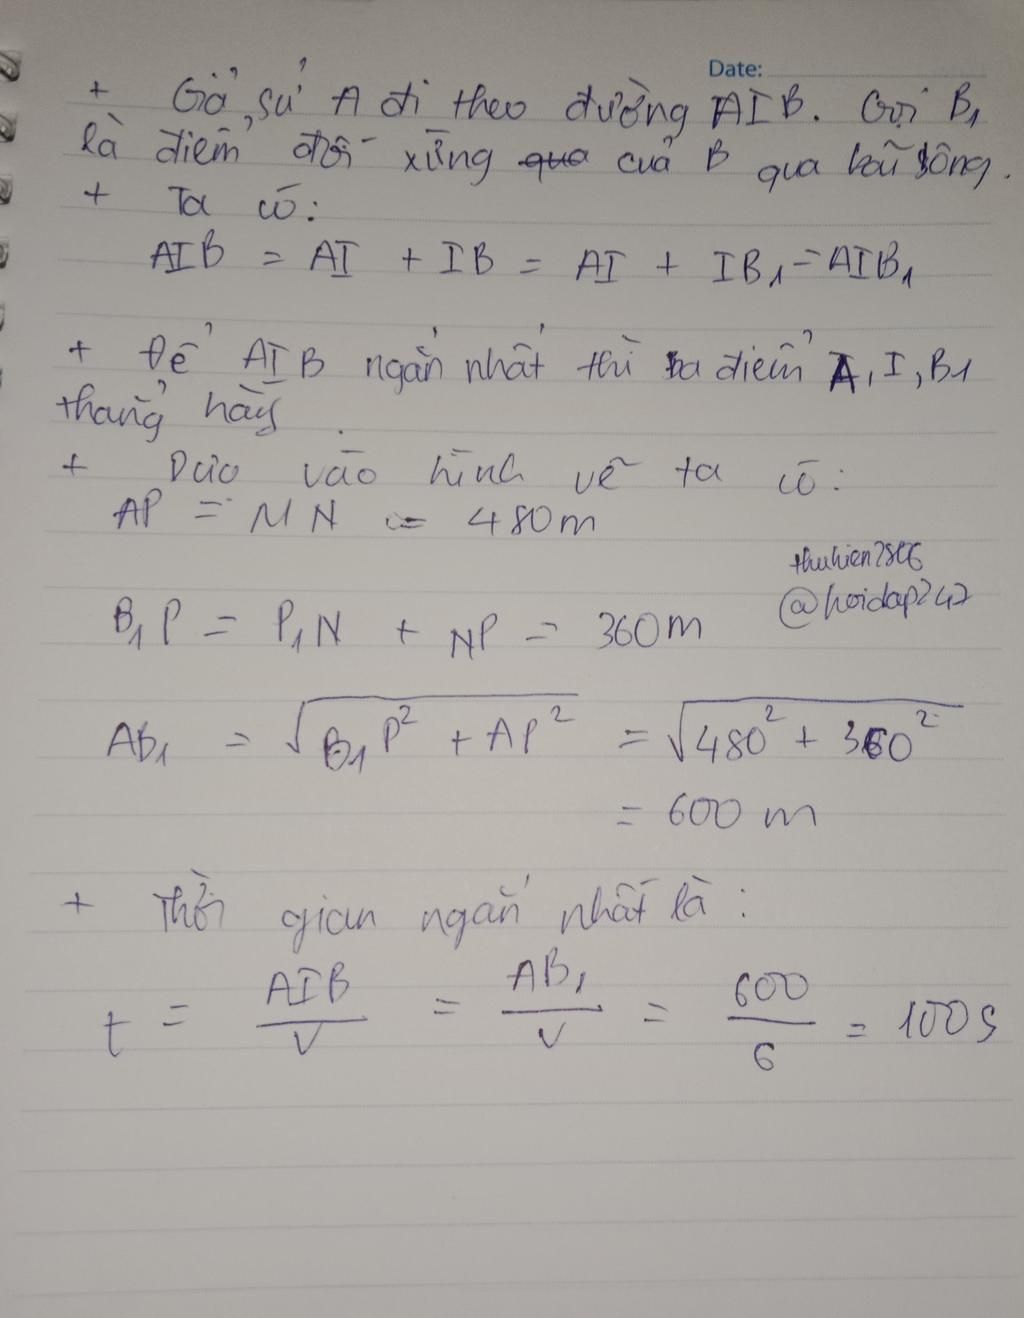 Date:
+ Giả sử A đi theo đường AIB. Gọi B₁
là điểm đối xứng qua của B qua bờ sông.
+ Ta có:
AIB = AI + IB = AI + IB₁ = AIB₁
+ Để AIB ngắn nhất thì ba điểm A, I, B₁
thẳng hàng.
+ Dựa vào hình vẽ ta có:
AP = MN = 480m
thuhien2806
@hoidap247
B₁P = P₁N + NP = 360m
AB₁ = √(B₁P² + AP²) = √(480² + 360²)
= 600 m
+ Thời gian ngắn nhất là:
t = AIB/V = AB₁/V = 600/6 = 100s